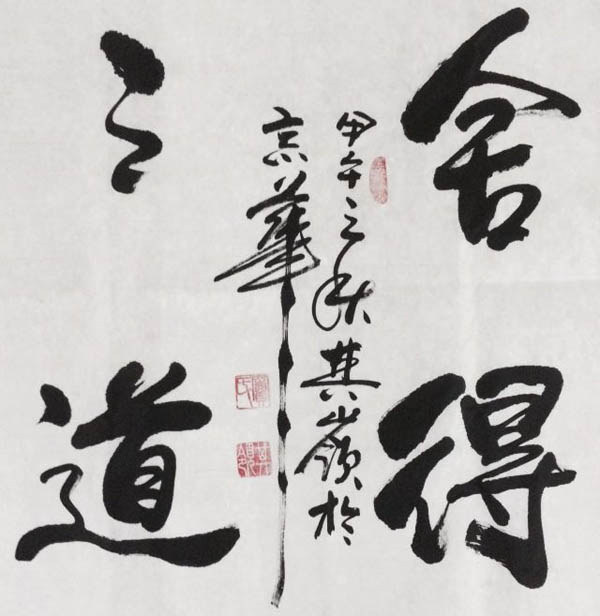 舍得
之道
甲午之秋其嶺於
京華